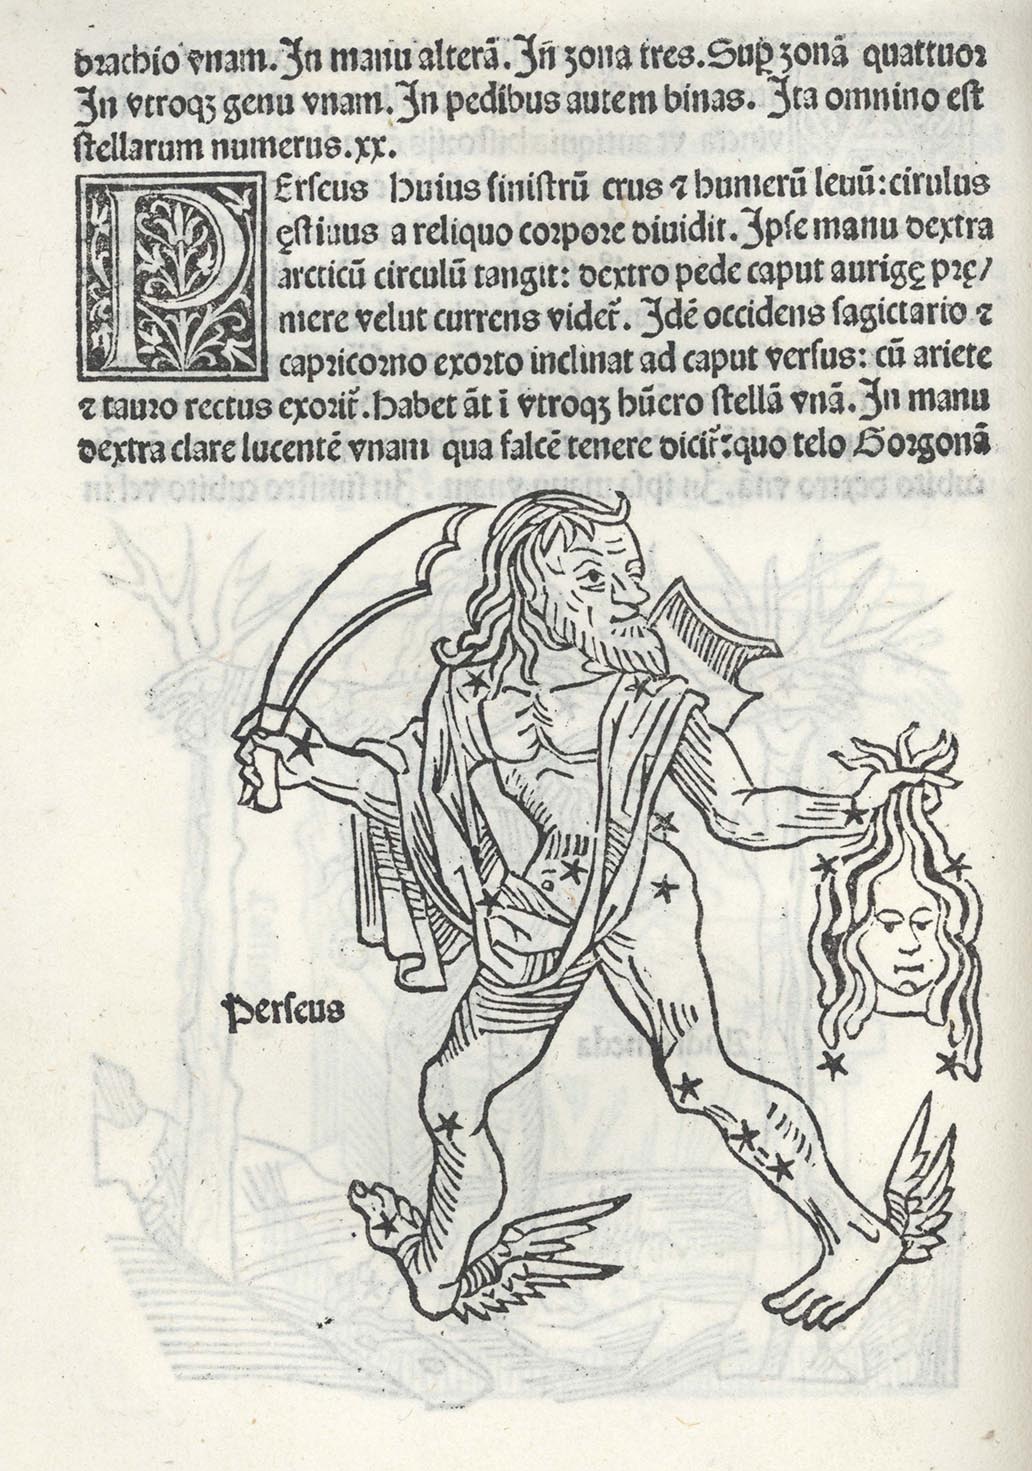 brachio vnam. In manu alterā. In̄ zona tres. Sup̱ zonā quattuor
In vtroqꝫ genu vnam. In pedibus autem binas. Ita omnino est
stellarum numerus. xx.
PErseus huius sinistrū crus ⁊ humerū leuū: cirulus
ęstiuus a reliquo corpore diuidit. Ipse manu dextra
arcticū circulū tangit: dextro pede caput aurigę prę/
mere velut currens videt᷑. Idē occidens sagictario ⁊
capricorno exorto inclinat ad caput versus: cū ariete
⁊ tauro rectus exorit᷑. Habet āt ī vtroqꝫ hūero stellā vnā. In manu
dextra clare lucentē vnam qua falcē tenere dicit᷑: quo telo Gorgonā
Perseus